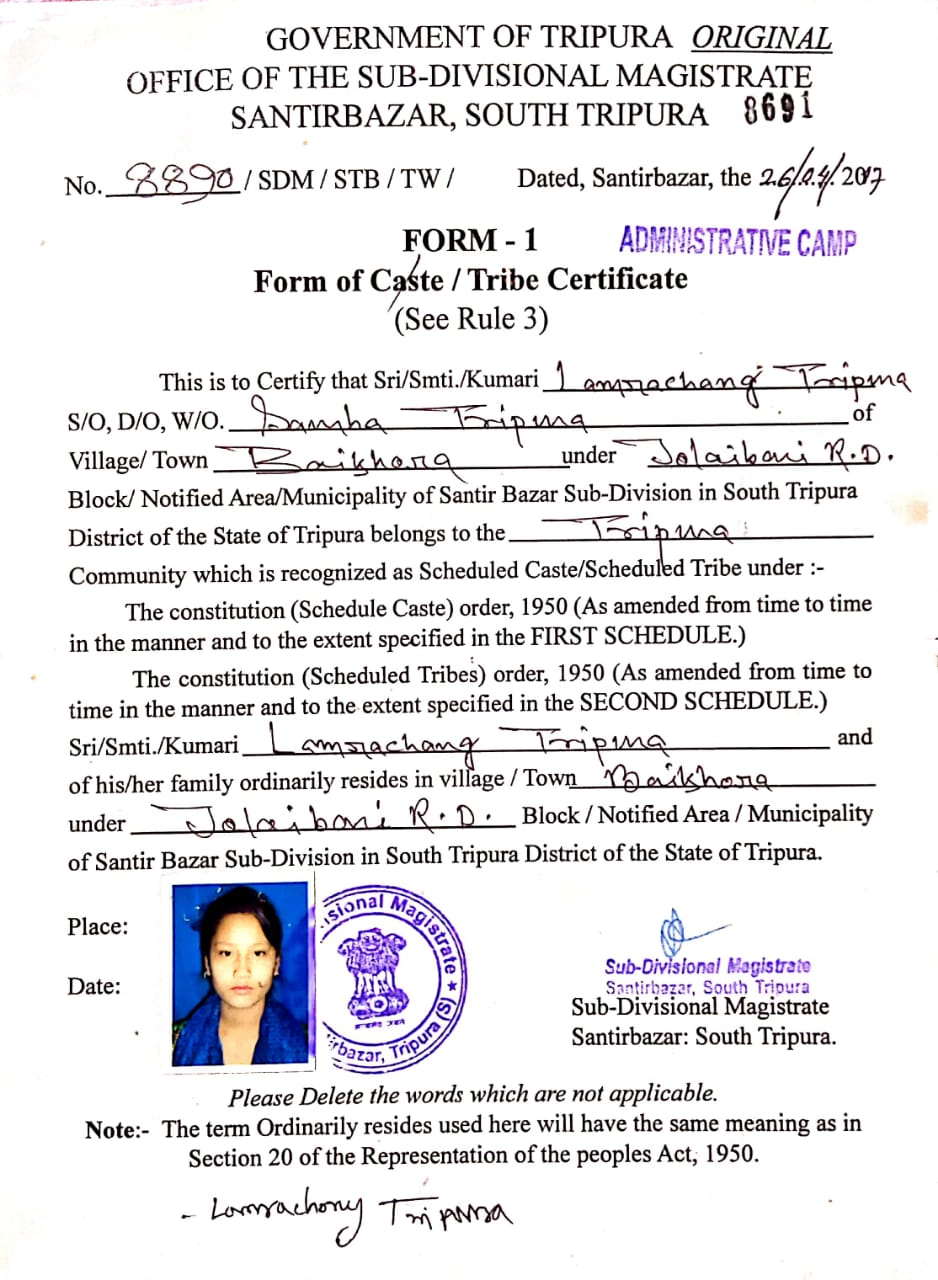 GOVERNMENT OF TRIPURA ORIGINAL
OFFICE OF THE SUB-DIVISIONAL MAGISTRATE
SANTIRBAZAR, SOUTH TRIPURA 8691
No. 8890 / SDM / STB / TW / Dated, Santirbazar, the 26/04/2017
FORM - 1 ADMINISTRATIVE CAMP
Form of Caste / Tribe Certificate
(See Rule 3)
This is to Certify that Sri/Smti./Kumari Lamrachang Tripura
S/O, D/O, W/O. Tripura of
Village/ Town Baikhora under Jolaibari R.D.
Block/ Notified Area/Municipality of Santir Bazar Sub-Division in South Tripura
District of the State of Tripura belongs to the Tripura
Community which is recognized as Scheduled Caste/Scheduled Tribe under :-
The constitution (Schedule Caste) order, 1950 (As amended from time to time
in the manner and to the extent specified in the FIRST SCHEDULE.)
The constitution (Scheduled Tribes) order, 1950 (As amended from time to
time in the manner and to the extent specified in the SECOND SCHEDULE.)
Sri/Smti./Kumari Lamrachang Tripura and
of his/her family ordinarily resides in village / Town Baikhora
under Jolaibari R.D. Block / Notified Area / Municipality
of Santir Bazar Sub-Division in South Tripura District of the State of Tripura.
Place:
Date:
isional Magistrate ★ (S)
irbazar, Tripura
सत्यमेव जयते
Sub-Divisional Magistrate
Santirbazar, South Tripura
Sub-Divisional Magistrate
Santirbazar: South Tripura.
Please Delete the words which are not applicable.
Note:- The term Ordinarily resides used here will have the same meaning as in
Section 20 of the Representation of the peoples Act, 1950.
- Lamrachang Tripura